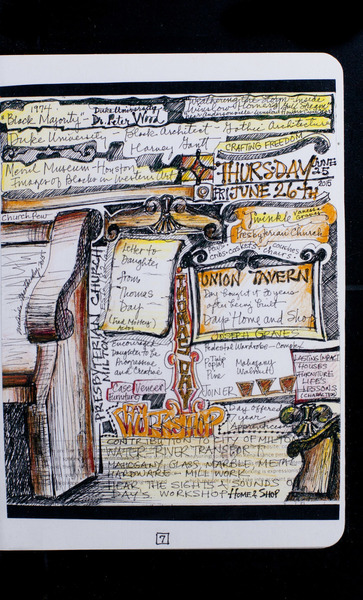 1974
"Black Majority"-
Duke University
Dr. Peter Wood
Weathering the Storm - Inside
Winslow Homer's Gulf Stream
Duke University - Black Architect - Gothic Architecture
Harvey Gantt
CRAFTING FREEDOM
Menil Museum - Houston
Images of Blacks in Western Art
THURSDAY JUNE 25
FRI JUNE 26TH 2015
Church Pew
PRESBYTERIAN CHURCH
MILTON
Letter to
Daughter
from
Thomas
Day
Presbyterian Church
UNION TAVERN
Day bought it 20 years
after being Built
Day's Home and Shop
THOMAS DAY
JOSEPH GRAVES
Pedestal Wardrobe - Complex
Encouraged
Daughter to be
Progressive
and Creative
Tulip
Poplar
Pine
Mahogany
Walnut
JOINER
Case Veneer
Furniture
LASTING IMPACT
HOUSES
FURNITURE
LIFE'S
LESSONS
(CHARACTER)
WORKSHOP
Day offered
CONTRIBUTION TO CITY OF MILTON
WATER - RIVER TRANSPORT
MAHOGANY, GLASS, MARBLE, METAL
HARDWARE - MILL WORK
HEAR THE SIGHTS & SOUNDS OF
DAY'S WORKSHOP HOME & SHOP
7